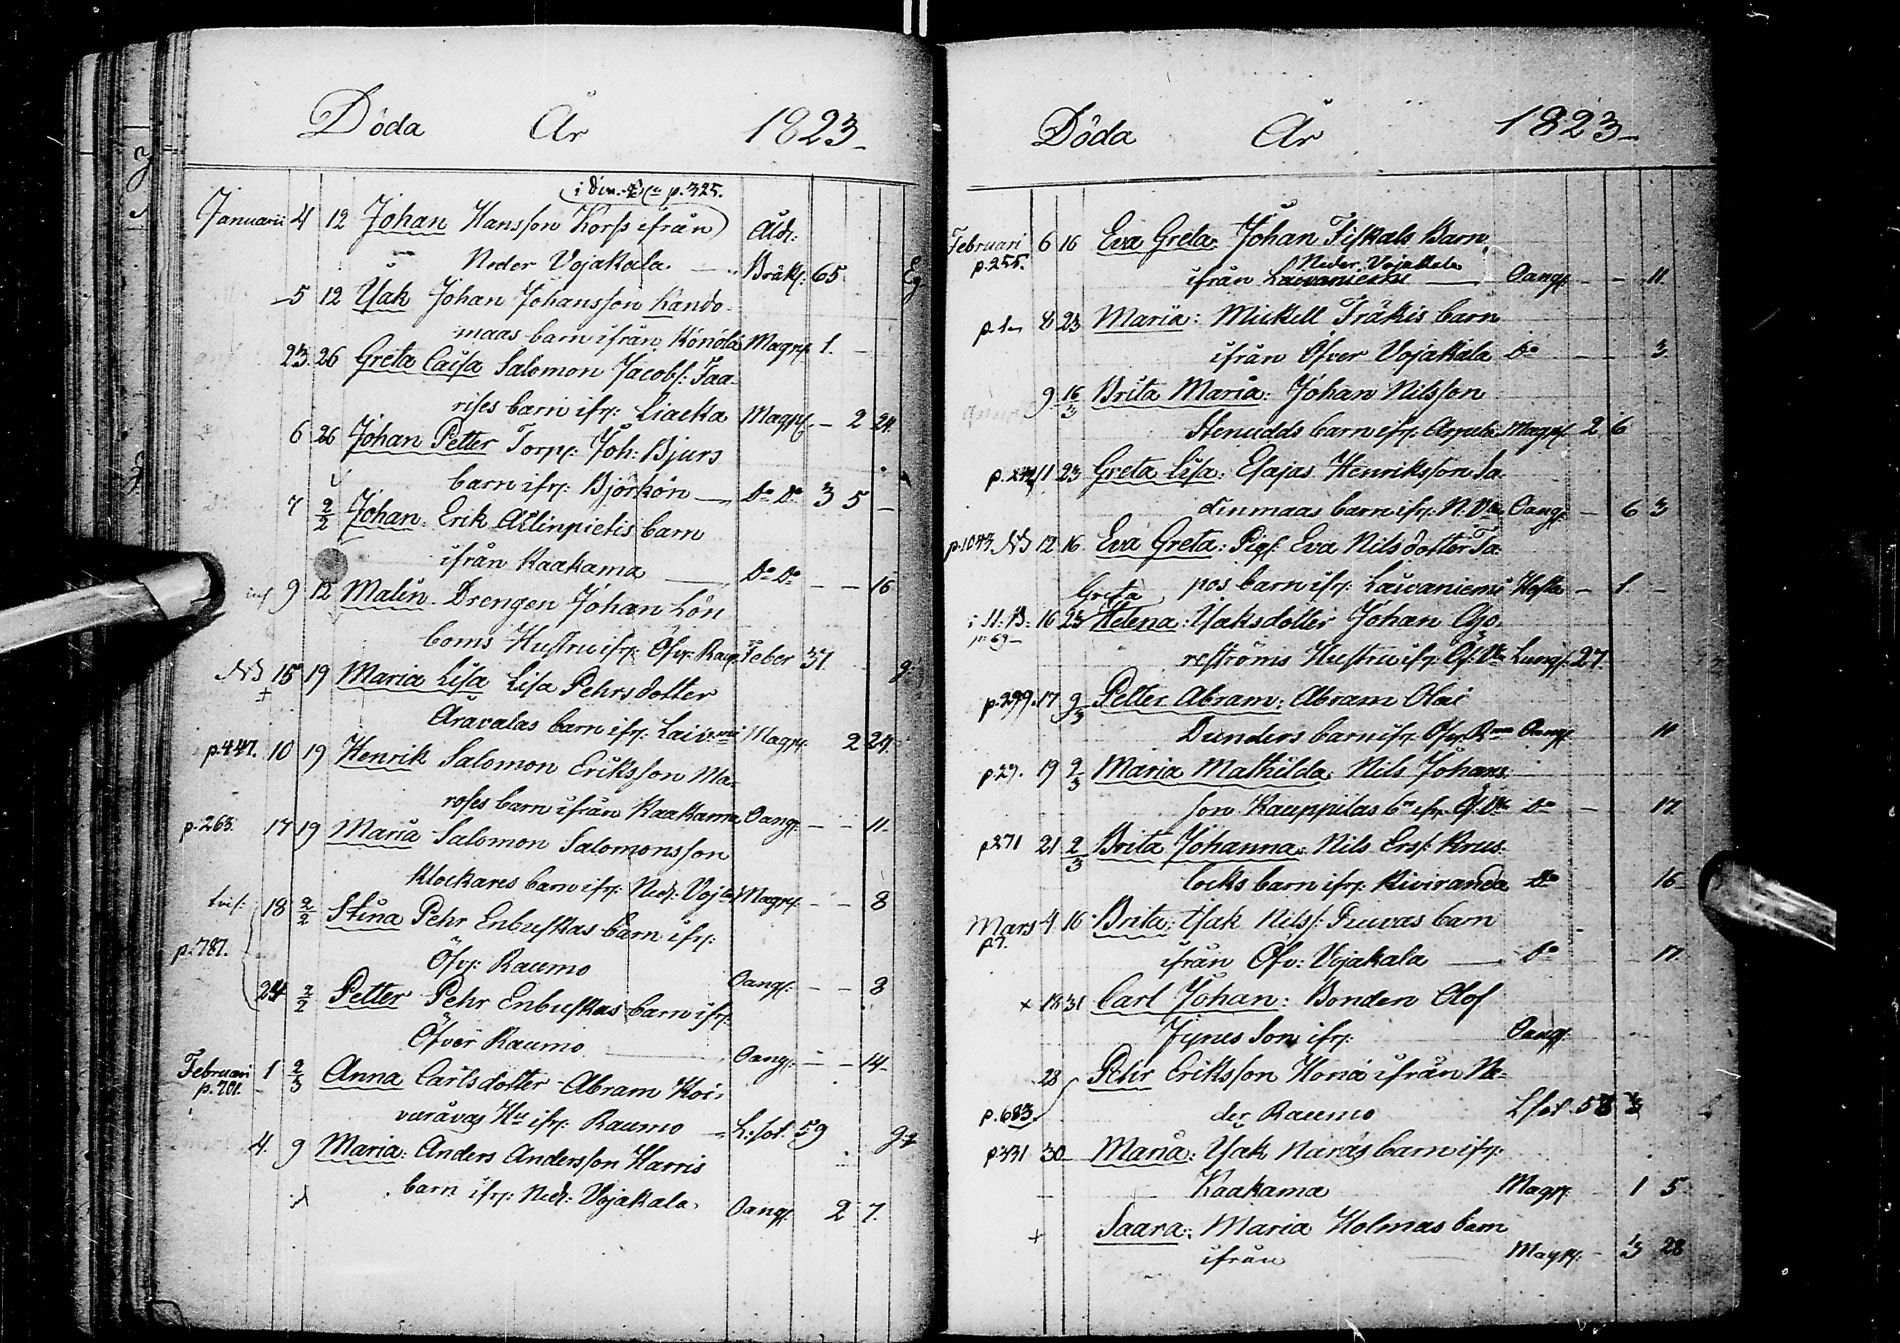 Döda År 1823
p. 325.
Januarii 4 12 Johan Hansson Korss ifrån Åld:
Neder Vojakala Bräkl: 65
5 12 Isak Johan Johansson Kando-
maas barn ifrån Könölä Magpl. 1.
23 26 Greta Caisa Salomon Jacobs: Taa-
rises barn ifr: Liacka Magpl. 2 24
6 26 Johan Petter Torp: Joh: Bjurs
barn ifr: Björkön Do Do 3 5
7 2/2 Johan Erik Alinpietis barn
ifrån Kaakama Do Do 16
9 12 Malin Drengen Johan Lön
boms Hustru ifr: Öfv: Rau: Feber 31
NB 15 19 Maria Lisa Lisa Pehrsdotter
Aravalas barn ifr: Magpl: 2 24
p. 447. 10 19 Henrik Salomon Eriksson Ma-
roses barn ifrån Kaakama Oang: 11.
p. 263. 17 19 Maria Salomon Salomonsson
Klockares barn ifr: Ned: Voj: Magpl. 8
18 2/2 Stina Pehr Enbuskas barn ifr:
p. 787. Öfv: Raumo Oang: 8
24 2/2 Petter Pehr Enbuskas barn ifr:
Öfver Raumo Oang: 14
Februari 1 2/3 Anna Carlsdotter Abram Koi-
p. 701. varavas Hu ifr: Raumo L:sot 59
4. 9 Maria: Anders Andersson Harris
barn ifr: Ned: Vojakala Oang: 2 7.
Döda År 1823
Februari 6 16 Eva Greta: Johan Fiskals Barn
p. 255. Neder Vojakkala
ifrån Laivaniemi Oang: 11
p. 1 8 23 Maria: Mickell Träkis barn
ifrån Öfver Vojakala Do 3
9 16/3 Brita Maria: Johan Nilsson
Stenudds barn ifr. Magpl. 2 6
11 23 Greta Lisa: Esajas Henriksson Sa-
dinmaas barn ifr: N. Oang: 6 3
p. 1043. NB 12 16 Eva Greta: Pig: Eva Nilsdotter Ta-
pos barn ifr: Laivaniemi Hosta 1
Greta
i H. B. 16 23 Helena: Isaksdotter Johan
p: 69 reströms Hustru ifr: Lungs: 27.
p. 299. 17 9/3 Petter Abram: Abram Olai
Dunders barn ifr: Öfv: Oang: 11
p. 29. 19 9/3 Maria Mathilda: Nils Johans-
son Kauppilas bn ifr. Do 17.
p 271 21 2/3 Brita Johanna: Nils Ers: Krus-
locks barn ifr: Kiviranda Do 16
Mars 4 16 Brita: Isak Nils: barn
p 7. ifrån Öfv: Vojakala Do 17
× 18 31 Carl Johan: Bonden Olof
Jynes Son ifr: Oang:
28 Pehr Eriksson Honia ifrån Ne-
p. 683. der Raumo L sot. 58
p 331 30 Maria: Isak Naras barn ifr:
Kaakama Magpl: 1 5
+ Saara: Maria Holmas barn
ifrån Magpl: 28